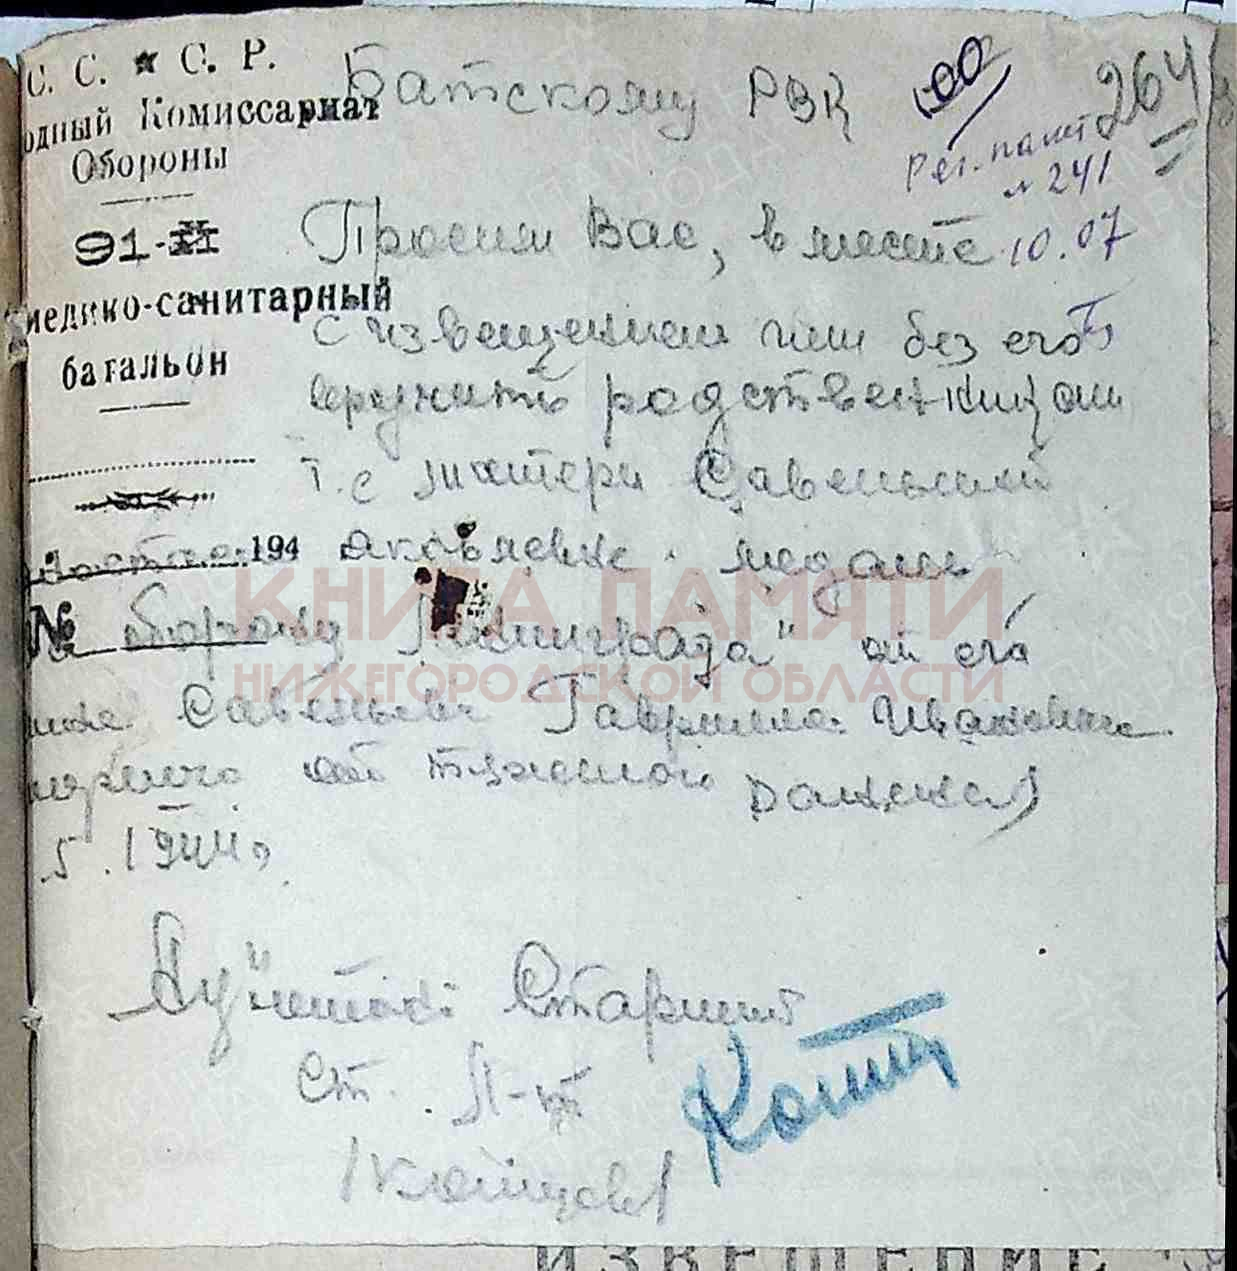 С. С. ★ С. Р.
одный Комиссариат
Обороны
91-й
медико-санитарный
батальон
194
№
Батскому РВК
264
Рег. памят
№ 241
10.07
Просим Вас, вместе
с извещением или без его
вручить родственникам
т.е матери Савельевой
Яковлевне медаль
оборону Ленинграда" от его
Савельева Гаврилла Ивановича
от тяжелого ранения
5. 1944г.
Старший
Ст. Л-т
КНИГА ПАМЯТИ
НИЖЕГОРОДСКОЙ ОБЛАСТИ
ИЗВЕЩЕНИЕ